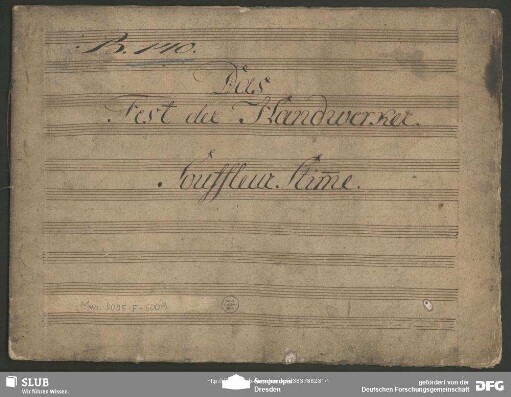 B. 140.
Das
Fest der Handwerker.
Souffleur Stim̅e.
Mus. 5095-F-500
SLUB
Wir führen Wissen.
http://
Dresden
gefördert von der
Deutschen Forschungsgemeinschaft
DFG